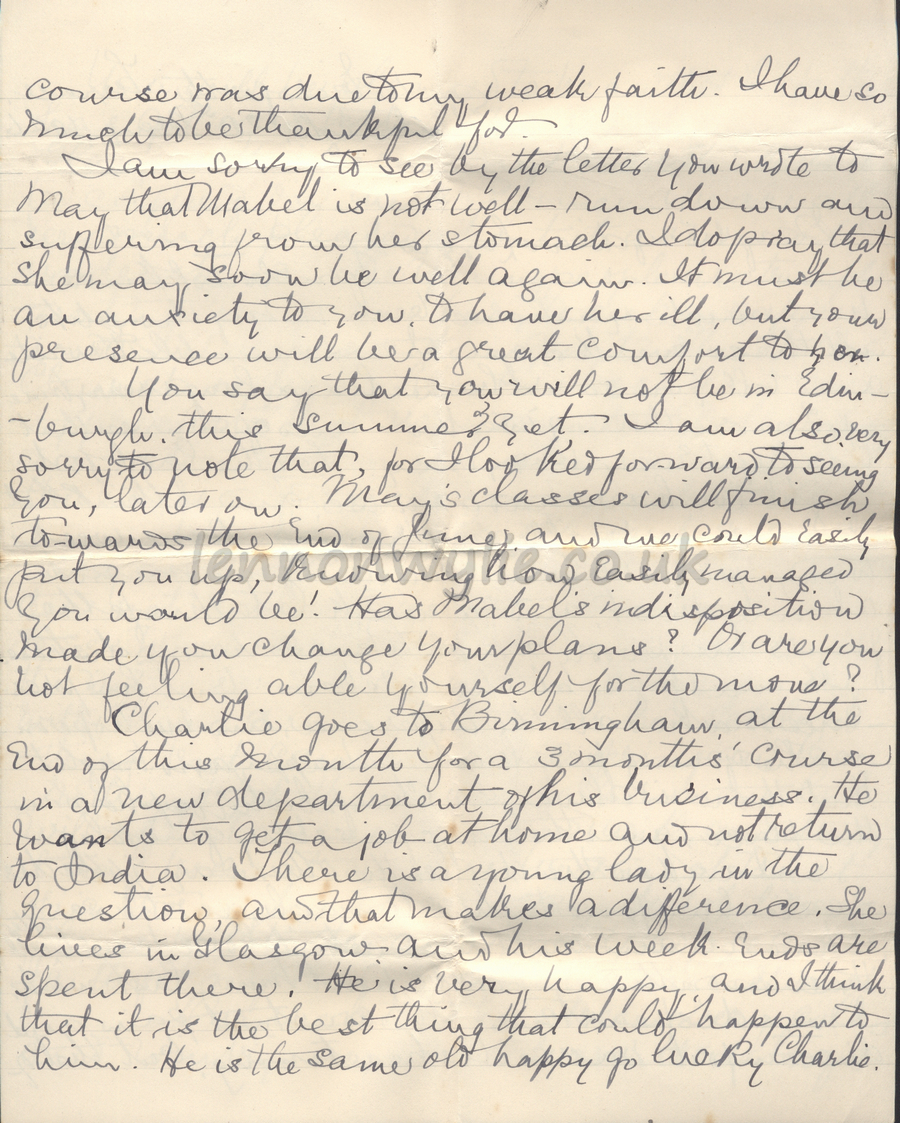 course was due to my weak faith. I have so
much to be thankful for.
I am sorry to see by the letter you wrote to
May that Mabel is not well - run down and
suffering from her stomach. I do pray that
she may soon be well again. It must be
an anxiety to you, to have her ill, but your
presence will be a great comfort to her.
You say that you will not be in Edin-
-burgh, this summer yet. I am also, very
sorry to note that, for I looked forward to seeing
you, later on. May's classes will finish
towards the End of June, and we could Easily
put you up, knowing how easily managed
you would be! Has Mabel's indisposition
made you change your plans? Or are you
not feeling able yourself for the move?
Charlie goes to Birmingham, at the
End of this month for a 3 months' course
in a new department of his business. He
wants to get a job at home and not return
to India. There is a young lady in the
question, and that makes a difference. She
lives in Glasgow and his week-Ends are
spent there! He is very happy, and I think
that it is the best thing that could happen to
him. He is the same old happy go lucky Charlie.
lennonwylie.co.uk